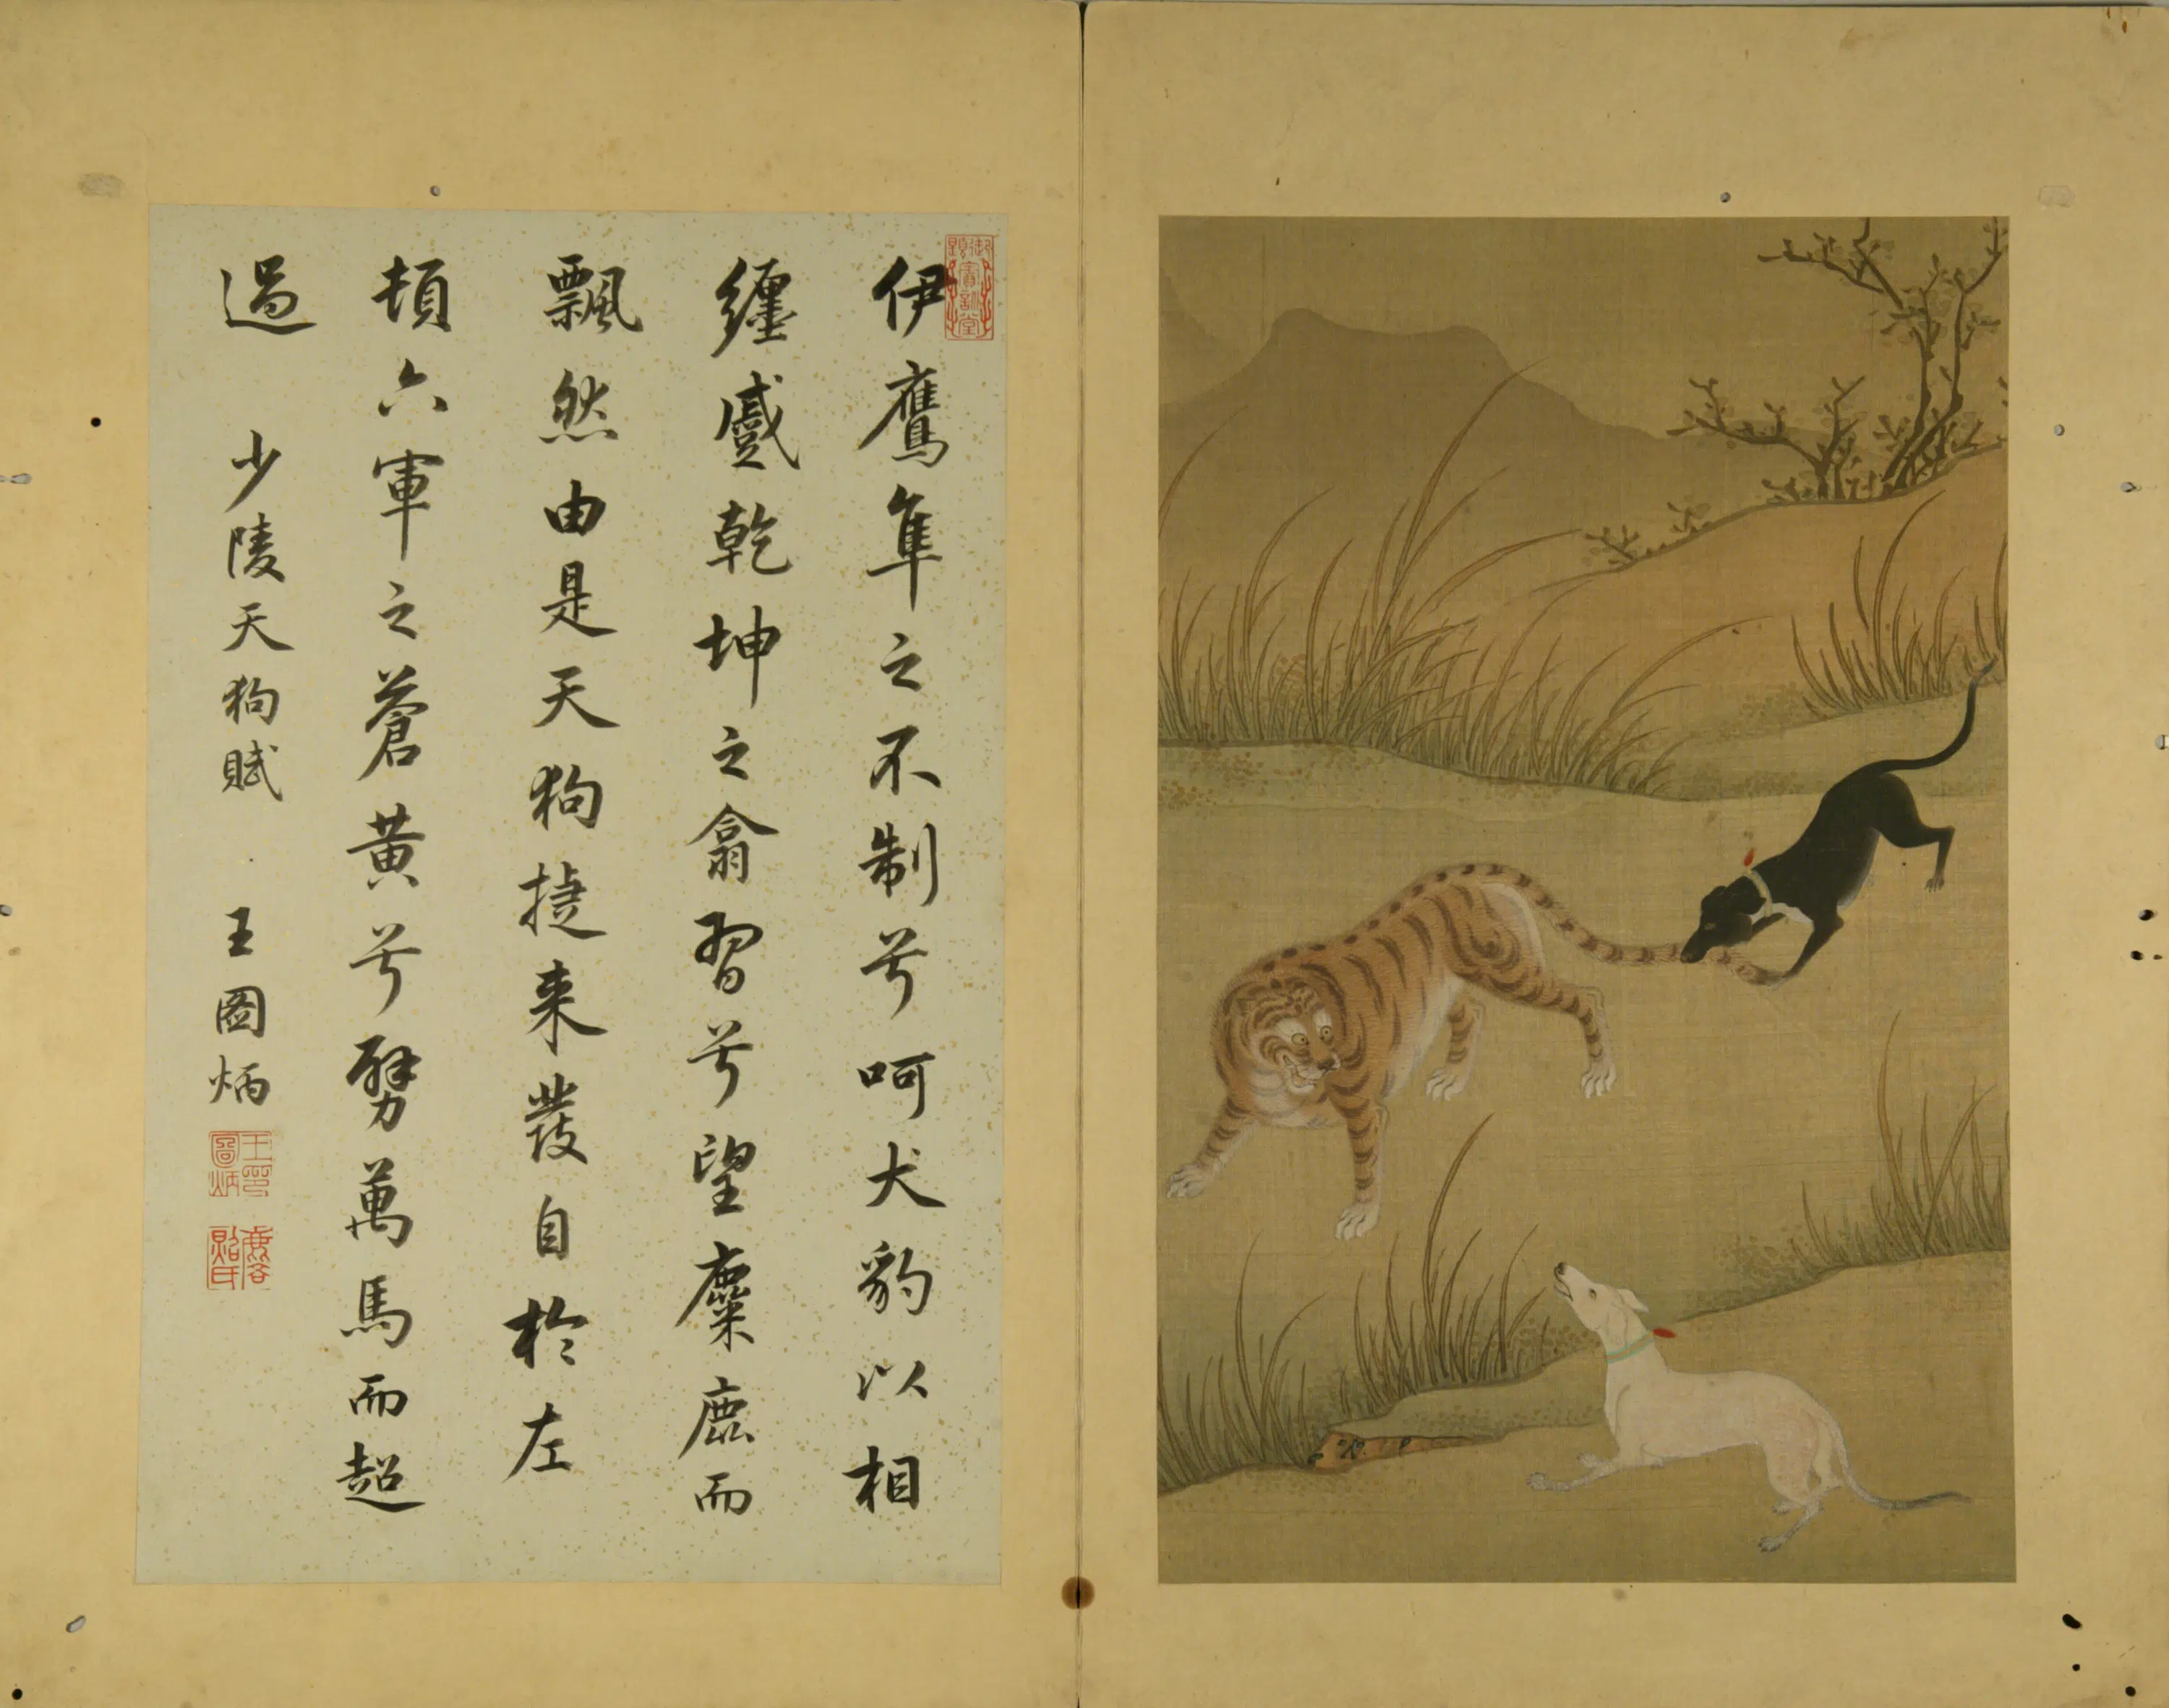 伊鷹隼之不制兮呵犬豹以相
纏蹙乾坤之翕習兮望麋鹿而
飄然由是天狗捷来發自於左
頓六軍之蒼黃兮劈萬馬而超
過
少陵天狗賦
王圖炳
王圖炳印